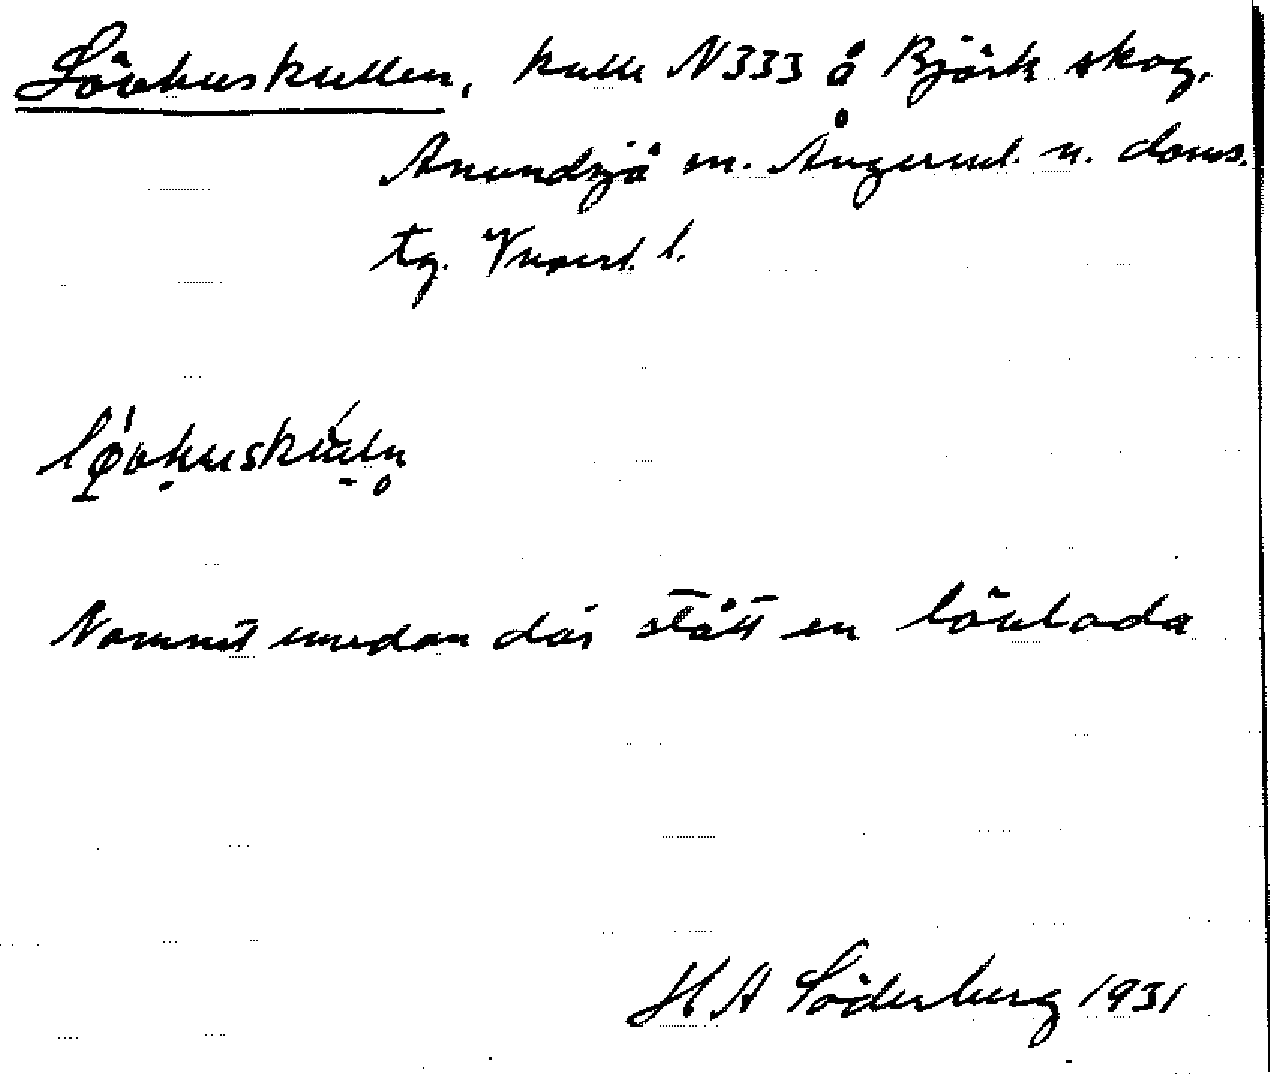 Lövhuskullen, kulle N333 å Björk skog,
Anundsjö sn. Ångerml. n. doms.
tg. Vnorrl. l.
Namnet emedan där stått en lövlada
H A Söderberg 1931